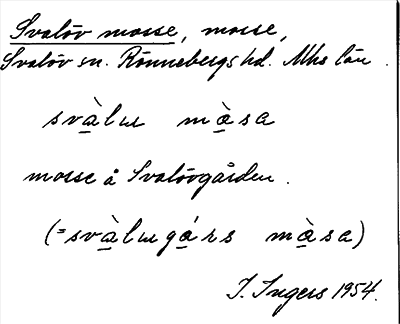 Svalöv mosse, mosse,
Svalöv sn. Rönnebergs hd. Mhs län.
svàlɯ màsa
mosse å Svalövgården.
(= svàlɯgárs màsa)
I. Ingers 1954.